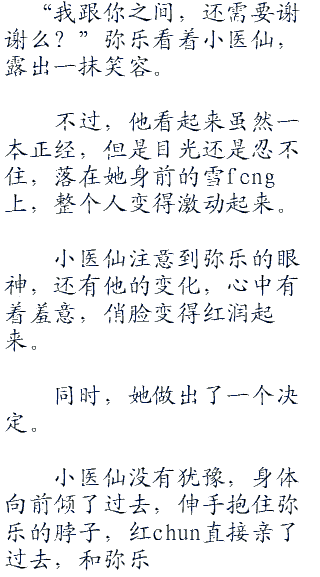 “我跟你之间，还需要谢
谢么？”弥乐看着小医仙，
露出一抹笑容。
不过，他看起来虽然一
本正经，但是目光还是忍不
住，落在她身前的雪feng
上，整个人变得激动起来。
小医仙注意到弥乐的眼
神，还有他的变化，心中有
着羞意，俏脸变得红润起
来。
同时，她做出了一个决
定。
小医仙没有犹豫，身体
向前倾了过去，伸手抱住弥
乐的脖子，红chun直接亲了
过去，和弥乐